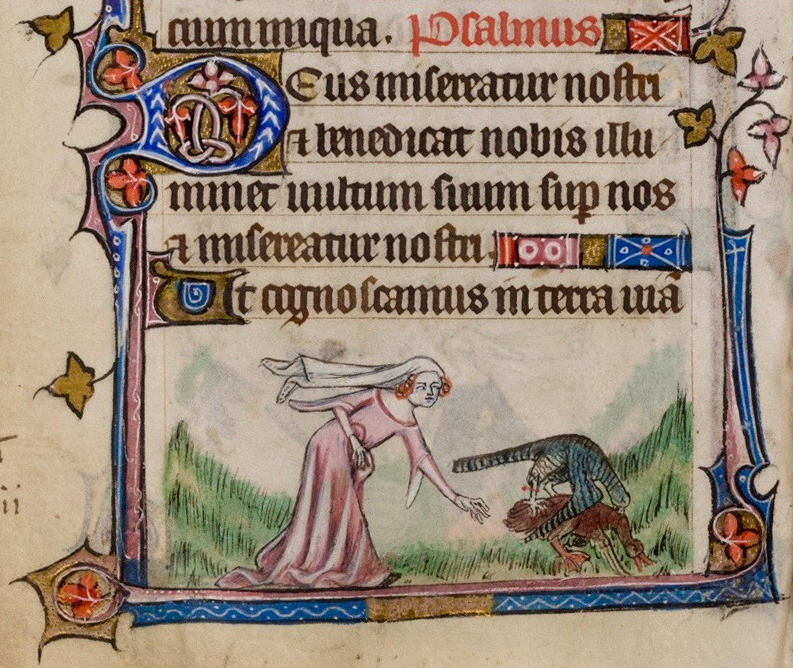 cium iniqua. Psalmus
Deus misereatur nostri
⁊ benedicat nobis illu
minet uultum suum suꝑ nos
⁊ misereatur nostri.
Ut cognoscamus in terra uiā
ii